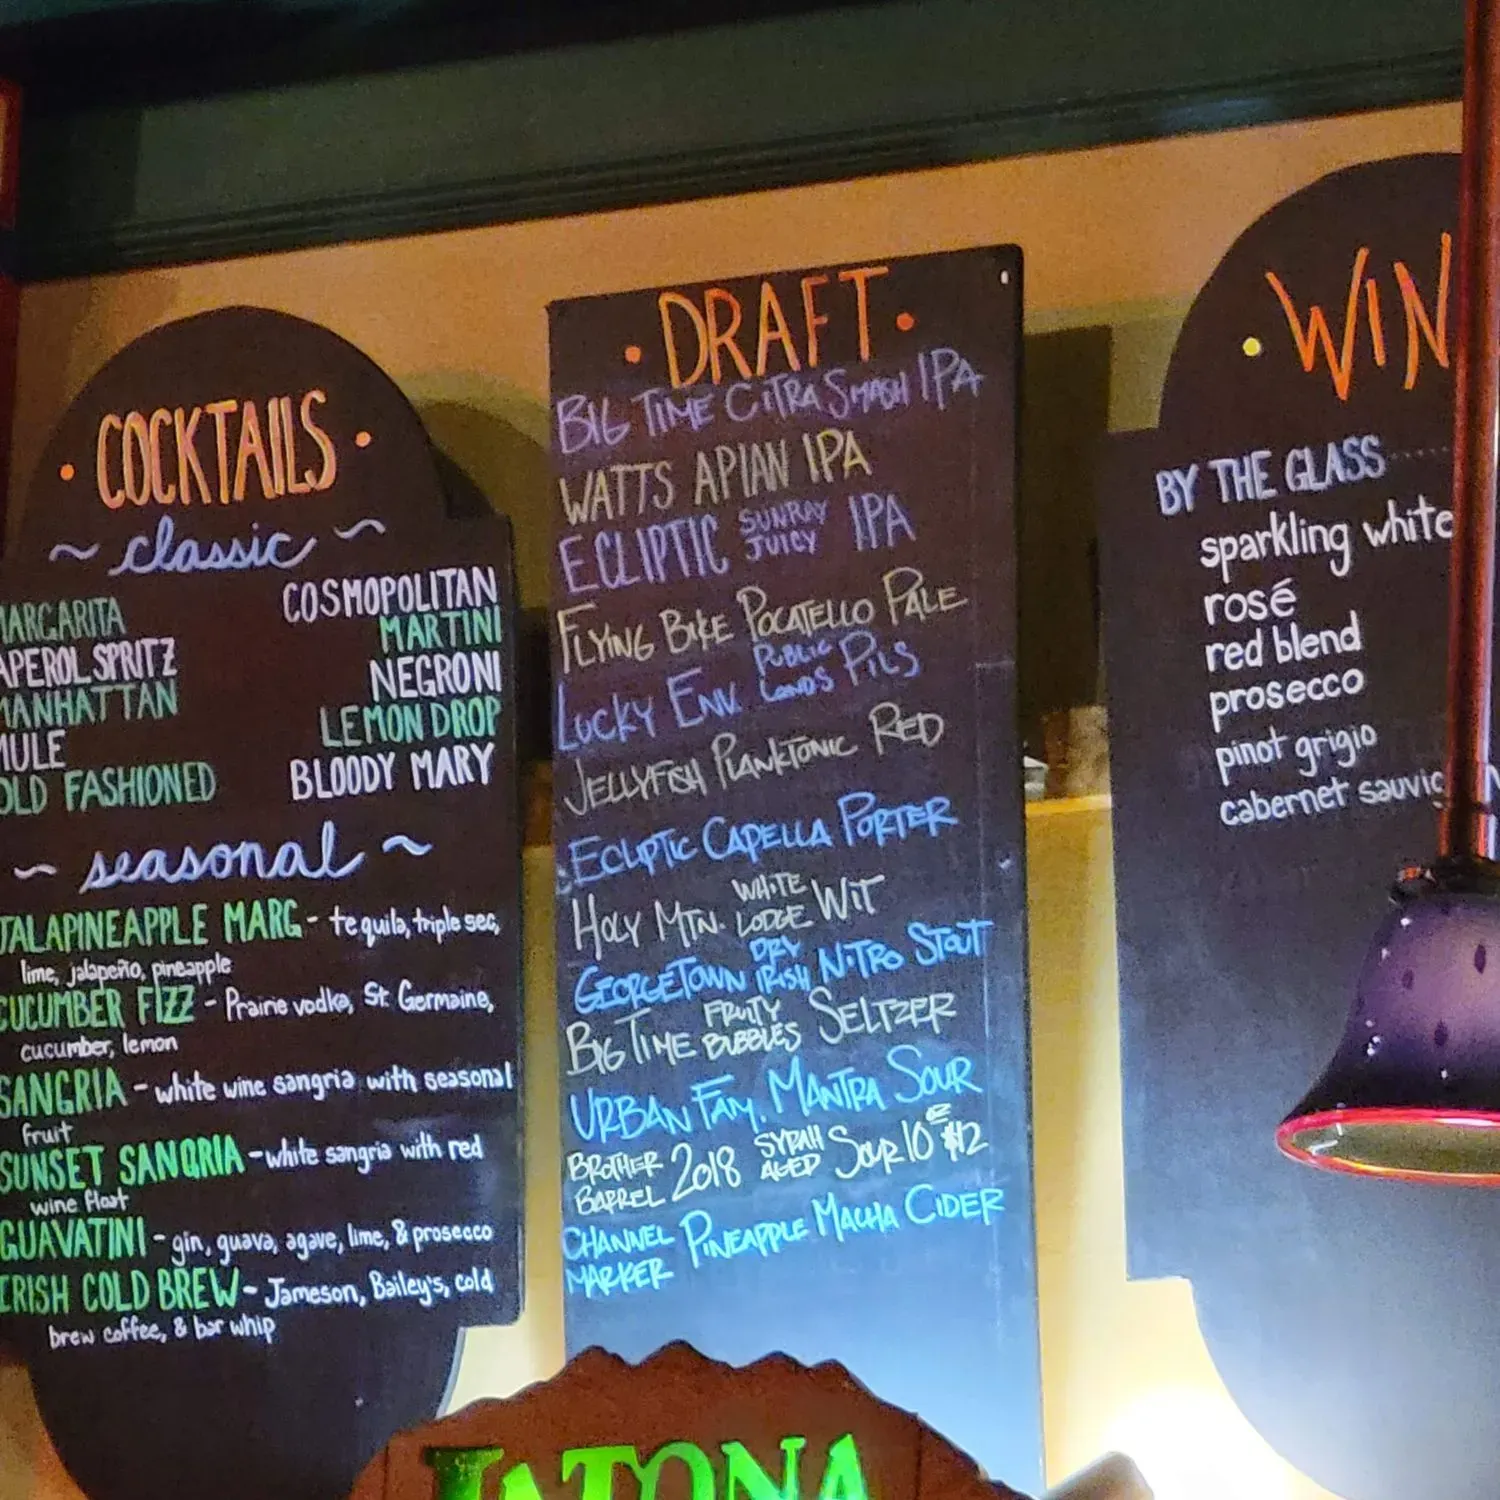 COCKTAILS
~ classic ~
MARGARITA
APEROL SPRITZ
MANHATTAN
MULE
OLD FASHIONED
COSMOPOLITAN
MARTINI
NEGRONI
LEMON DROP
BLOODY MARY
~ seasonal ~
JALAPINEAPPLE MARG - tequila, triple sec,
lime, jalapeño, pineapple
CUCUMBER FIZZ - Prairie vodka, St. Germaine,
cucumber, lemon
SANGRIA - white wine sangria with seasonal
fruit
SUNSET SANGRIA - white sangria with red
wine float
GUAVATINI - gin, guava, agave, lime, & prosecco
IRISH COLD BREW - Jameson, Bailey's, cold
brew coffee, & bar whip
· DRAFT ·
BIG TIME CITRA SMASH IPA
WATTS APIAN IPA
ECLIPTIC SUNRAY JUICY IPA
FLYING BIKE POCATELLO PALE
LUCKY ENV. PUBLIC LANDS PILS
JELLYFISH PLANKTONIC RED
ECLIPTIC CAPELLA PORTER
HOLY MTN. WHITE LODGE WIT
GEORGETOWN DRY IRISH NITRO STOUT
BIG TIME FRUITY BUBBLES SELTZER
URBAN FAM. MANTRA SOUR
BROTHER BARREL 2018 SYRAH AGED SOUR 10 OZ $12
CHANNEL MARKER PINEAPPLE MACHA CIDER
· WIN
BY THE GLASS
sparkling white
rosé
red blend
prosecco
pinot grigio
cabernet sauvig
LATONA